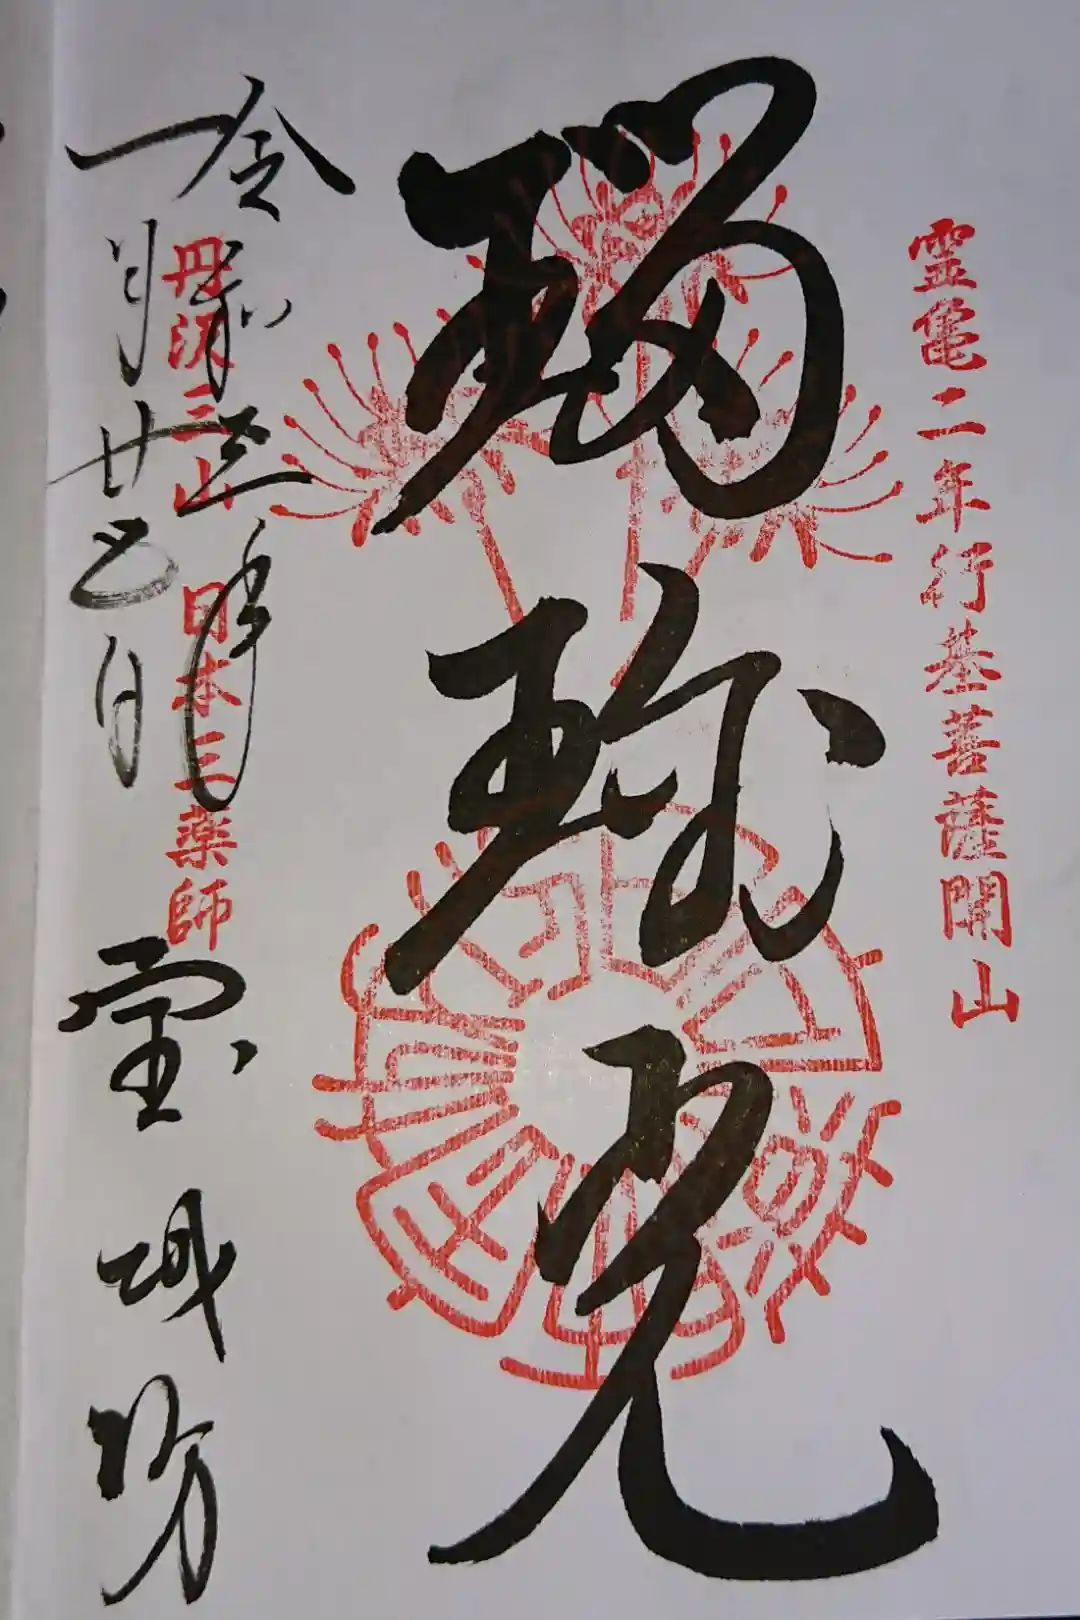 霊亀二年行基菩薩開山
瑠璃光
丹沢三山 日本三薬師
令和三年
一月廿五日
宝城坊